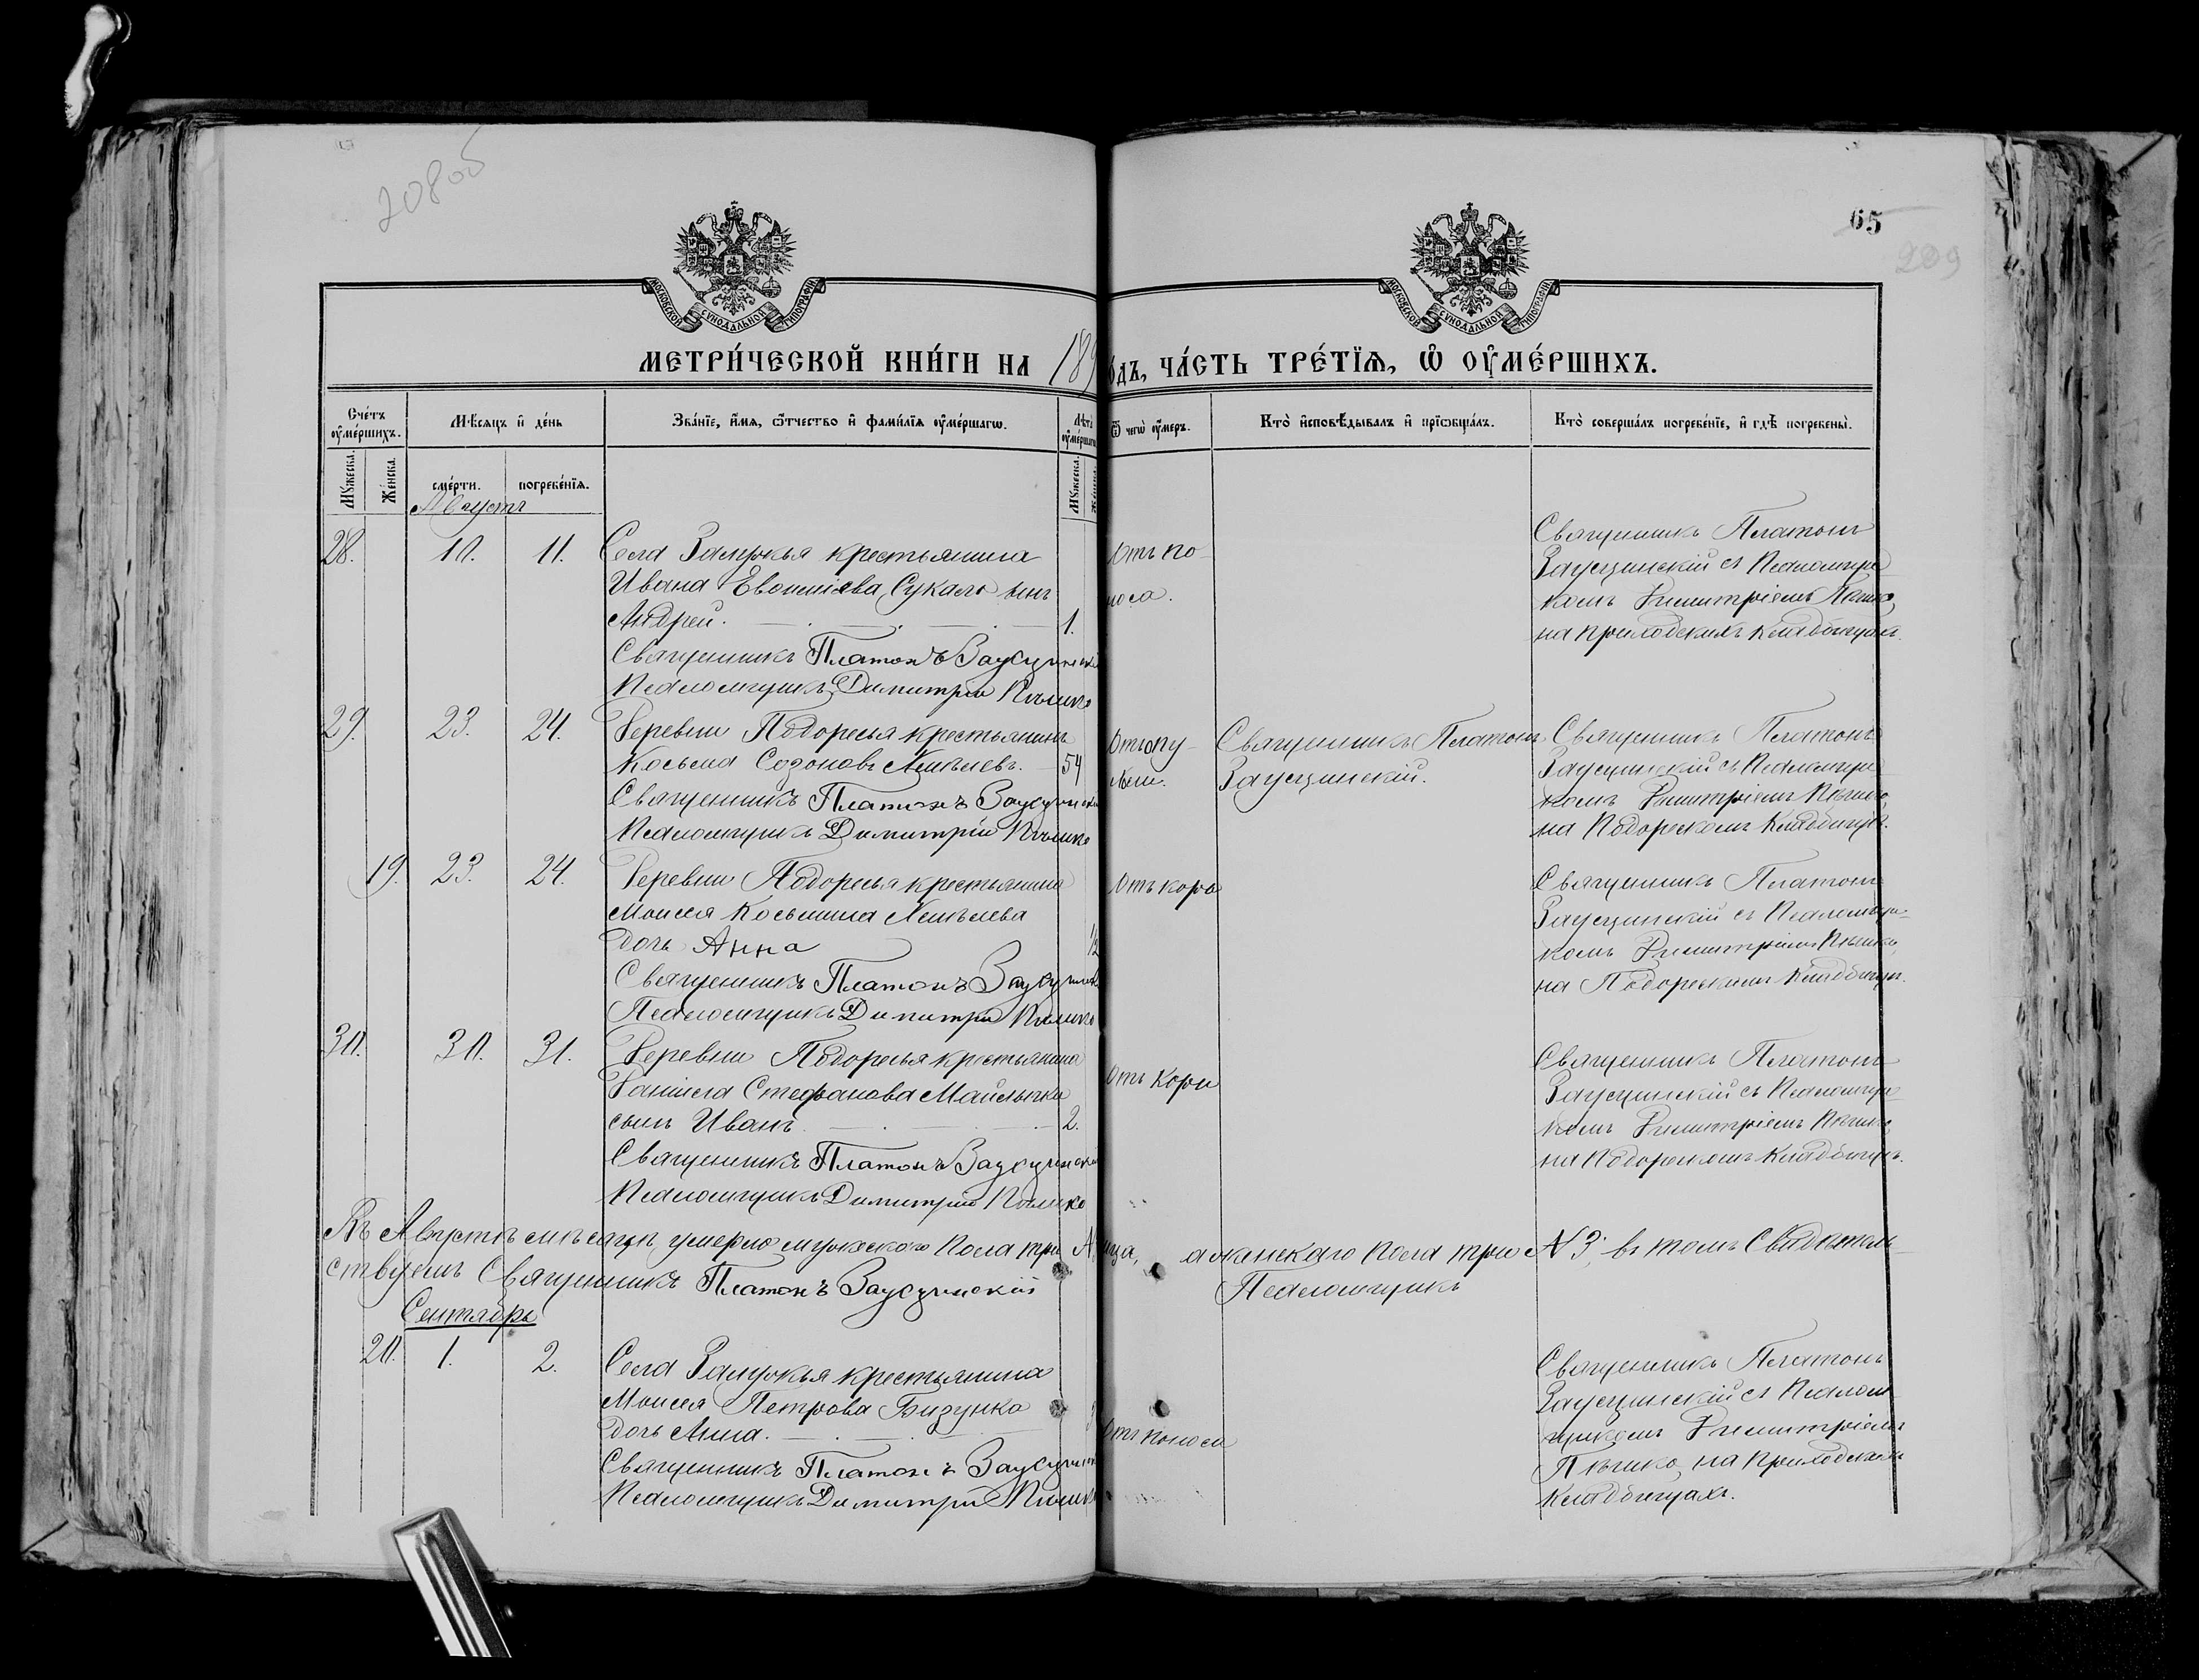 208об
65
209
МОСКОВСКОЙ СѴНОДАЛЬНОЙ ТИПОГРАФІИ
МОСКОВСКОЙ СѴНОДАЛЬНОЙ ТИПОГРАФІИ
МЕТРИ́ЧЕСКОЙ КНИ́ГИ НА 189
О́ДЪ, ЧА́СТЬ ТРЕ́ТЇѦ, Ѽ ОУ҆МЕ́РШИХЪ.
Сче́тъ оу҆ме́ршихъ.
Мѣ́сяцъ и҆ де́нь
Зва́нїе, и҆́мѧ, ѻ҆́тчество и҆ фами́лїѧ оу҆ме́ршагѡ.
Лѣ́та оу҆ме́ршагѡ
Ѿ чегѡ̀ оу҆́меръ.
Кто̀ и҆сповѣ́дывалъ и҆ прїѡбща́лъ.
Кто̀ соверша́лъ погребе́нїе, и҆ гдѣ̀ погребены̀.
Мꙋ́жеска.
Же́нска.
сме́рти.
погребе́нїѧ.
Мꙋ́жеска.
Августъ
28. 10. 11. Села Залужья крестьянина
Ивана Сукало сынъ
Андрей. 1.
Священникъ Платонъ Заусцинскій
Псаломщикъ Димитрій
Отъ по-
носа.
Священникъ Платонъ
Заусцинскій съ Псаломщи-
комъ Димитріемъ
на приходскихъ кладбищахъ.
29. 23. 24. Деревни Подоресья крестьянинъ
Косьма Созоновъ 54
Священникъ Платонъ Заусцинскі
Псаломщикъ Димитрій
Отъ опу-
холи.
Священникъ Платонъ
Заусцинскій.
Священникъ Платонъ
Заусцинскій съ Псаломщи-
комъ Димитріемъ
на Подорескомъ кладбищѣ.
19. 23. 24. Деревни Подоресья крестьянина
Моисея Косьмина
дочь Анна 1/2
Священникъ Платонъ Заусцинск
Псаломщикъ Димитрій
Отъ кори
Священникъ Платонъ
Заусцинскій съ Псаломщи-
комъ Димитріемъ
на Подорескомъ кладбищѣ.
30. 30. 31. Деревни Подоресья крестьянина
Даніила Стефанова
сынъ Иванъ 2.
Священникъ Платонъ Заусцинскі
Псаломщикъ Димитрій
Отъ кори
Священникъ Платонъ
Заусцинскій съ Псаломщи-
комъ Димитріемъ
на Подорескомъ кладбищѣ.
Въ Августѣ мѣсяцѣ умерло мужескаго пола три а женскаго пола три № 3; въ томъ свидѣтель-
ствуемъ Священникъ Платонъ Заусцинскій
Псаломщикъ
Сентябрь
20. 1. 2. Села Залужья крестьянина
Моисея Петрова Бизунко
дочь Анна.
Священникъ Платонъ Заусцинск
Псаломщикъ Димитрій
Отъ поноса
Священникъ Платонъ
Заусцинскій съ Псалом-
щикомъ Димитріемъ
на приходскихъ
кладбищахъ.